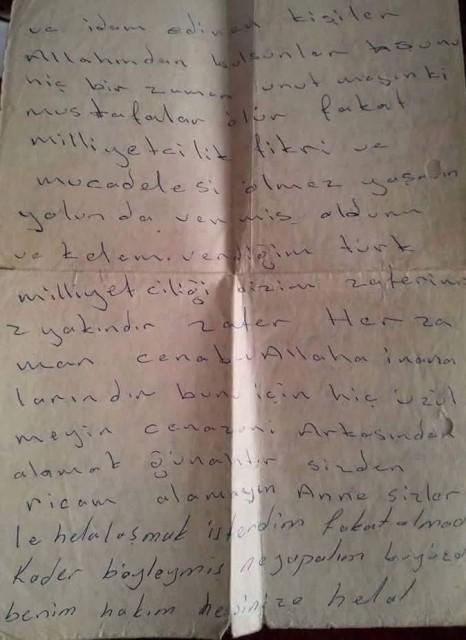 ve idam edinen kişiler
Allahından bulsunlar şunu
hiç bir zaman unut mayın ki
mustafalar ölür fakat
milliyetcilik fikri ve
mucadelesi ölmez yaşasın
yolunda vermiş oldum
ve kelem verdiğim türk
milliyet ciliği bizim zaferimi
z yakındır zafer Her za
man cenab-ı Allaha inana
larındır bunu için hiç üzül
meyin cenazeni Arkasından
alamak günahtır sizden
ricam alamayın Anne sizler
le helalaşmak isterdim fakat olmad
Kader böyleymiş ne yapalım
benim hakım hepinize helal